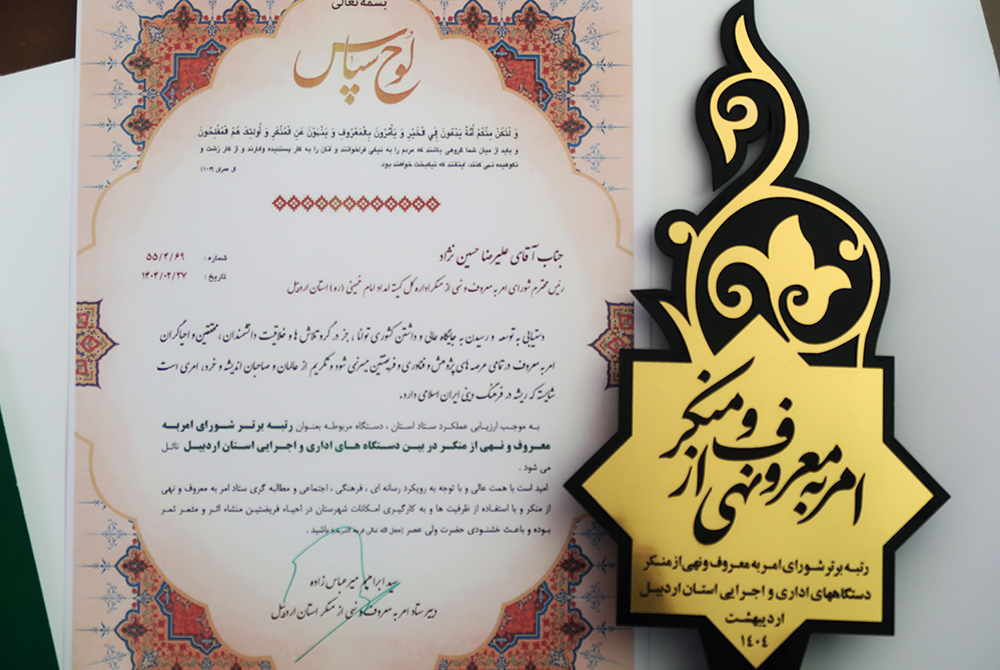 بسمه تعالی
لوح سپاس
وَ لْتَکُنْ مِنْکُمْ أُمَّةٌ یَدْعُونَ إِلَی الْخَیْرِ وَ یَأْمُرُونَ بِالْمَعْرُوفِ وَ یَنْهَوْنَ عَنِ الْمُنْکَرِ وَ أُولئِکَ هُمُ الْمُفْلِحُونَ
و باید از میان شما گروهی باشند که مردم را به نیکی فراخوانند و آنان را به کار پسندیده وادارند و از کار زشت و
نکوهیده نهی کنند، اینانند که نیکبخت خواهند بود.
آل عمران (۱۰۴)
جناب آقای علیرضا حسین نژاد
شماره : ۵۵/۴/۶۹
رئیس محترم شورای امر به معروف و نهی از منکر اداره کل کمیته امداد امام خمینی (ره) استان اردبیل
تاریخ : ۱۴۰۴/۰۲/۲۷
دستیابی به توسعه و رسیدن به جایگاه عالی و داشتن کشوری توانا ، جز در گرو تلاش ها و خلاقیت دانشمندان ، محققین و احیاگران
امر به معروف در تمامی عرصه های پژوهش و فناوری و فریضتین میسر نمی شود و تکریم از عالمان و صاحبان اندیشه و خرد، امری است
شایسته که ریشه در فرهنگ دینی ایران اسلامی دارد.
به موجب ارزیابی عملکرد ستاد استان ، دستگاه مربوطه بعنوان رتبه برتر شورای امربه
معروف و نهی از منکر در بین دستگاه های اداری و اجرایی استان اردبیل نائل
می شود .
امید است با همت عالی و با توجه به رویکرد رسانه ای ، فرهنگی ، اجتماعی و مطالبه گری ستاد امر به معروف و نهی
از منکر و با استفاده از ظرفیت ها و به کارگیری امکانات شهرستان از احیاء فریضتین منشاء اثر و مثمر ثمر
بوده و باعث خشنودی حضرت ولی عصر (عجل الله تعالی فرجه الشریف) باشید .
سید ابراهیم میرعباس زاده
دبیر ستاد امر به معروف و نهی از منکر استان اردبیل
امر به معروف و نهی از منکر
رتبه برتر شورای امر به معروف و نهی از منکر
دستگاههای اداری و اجرایی استان اردبیل
اردیبهشت
۱۴۰۴